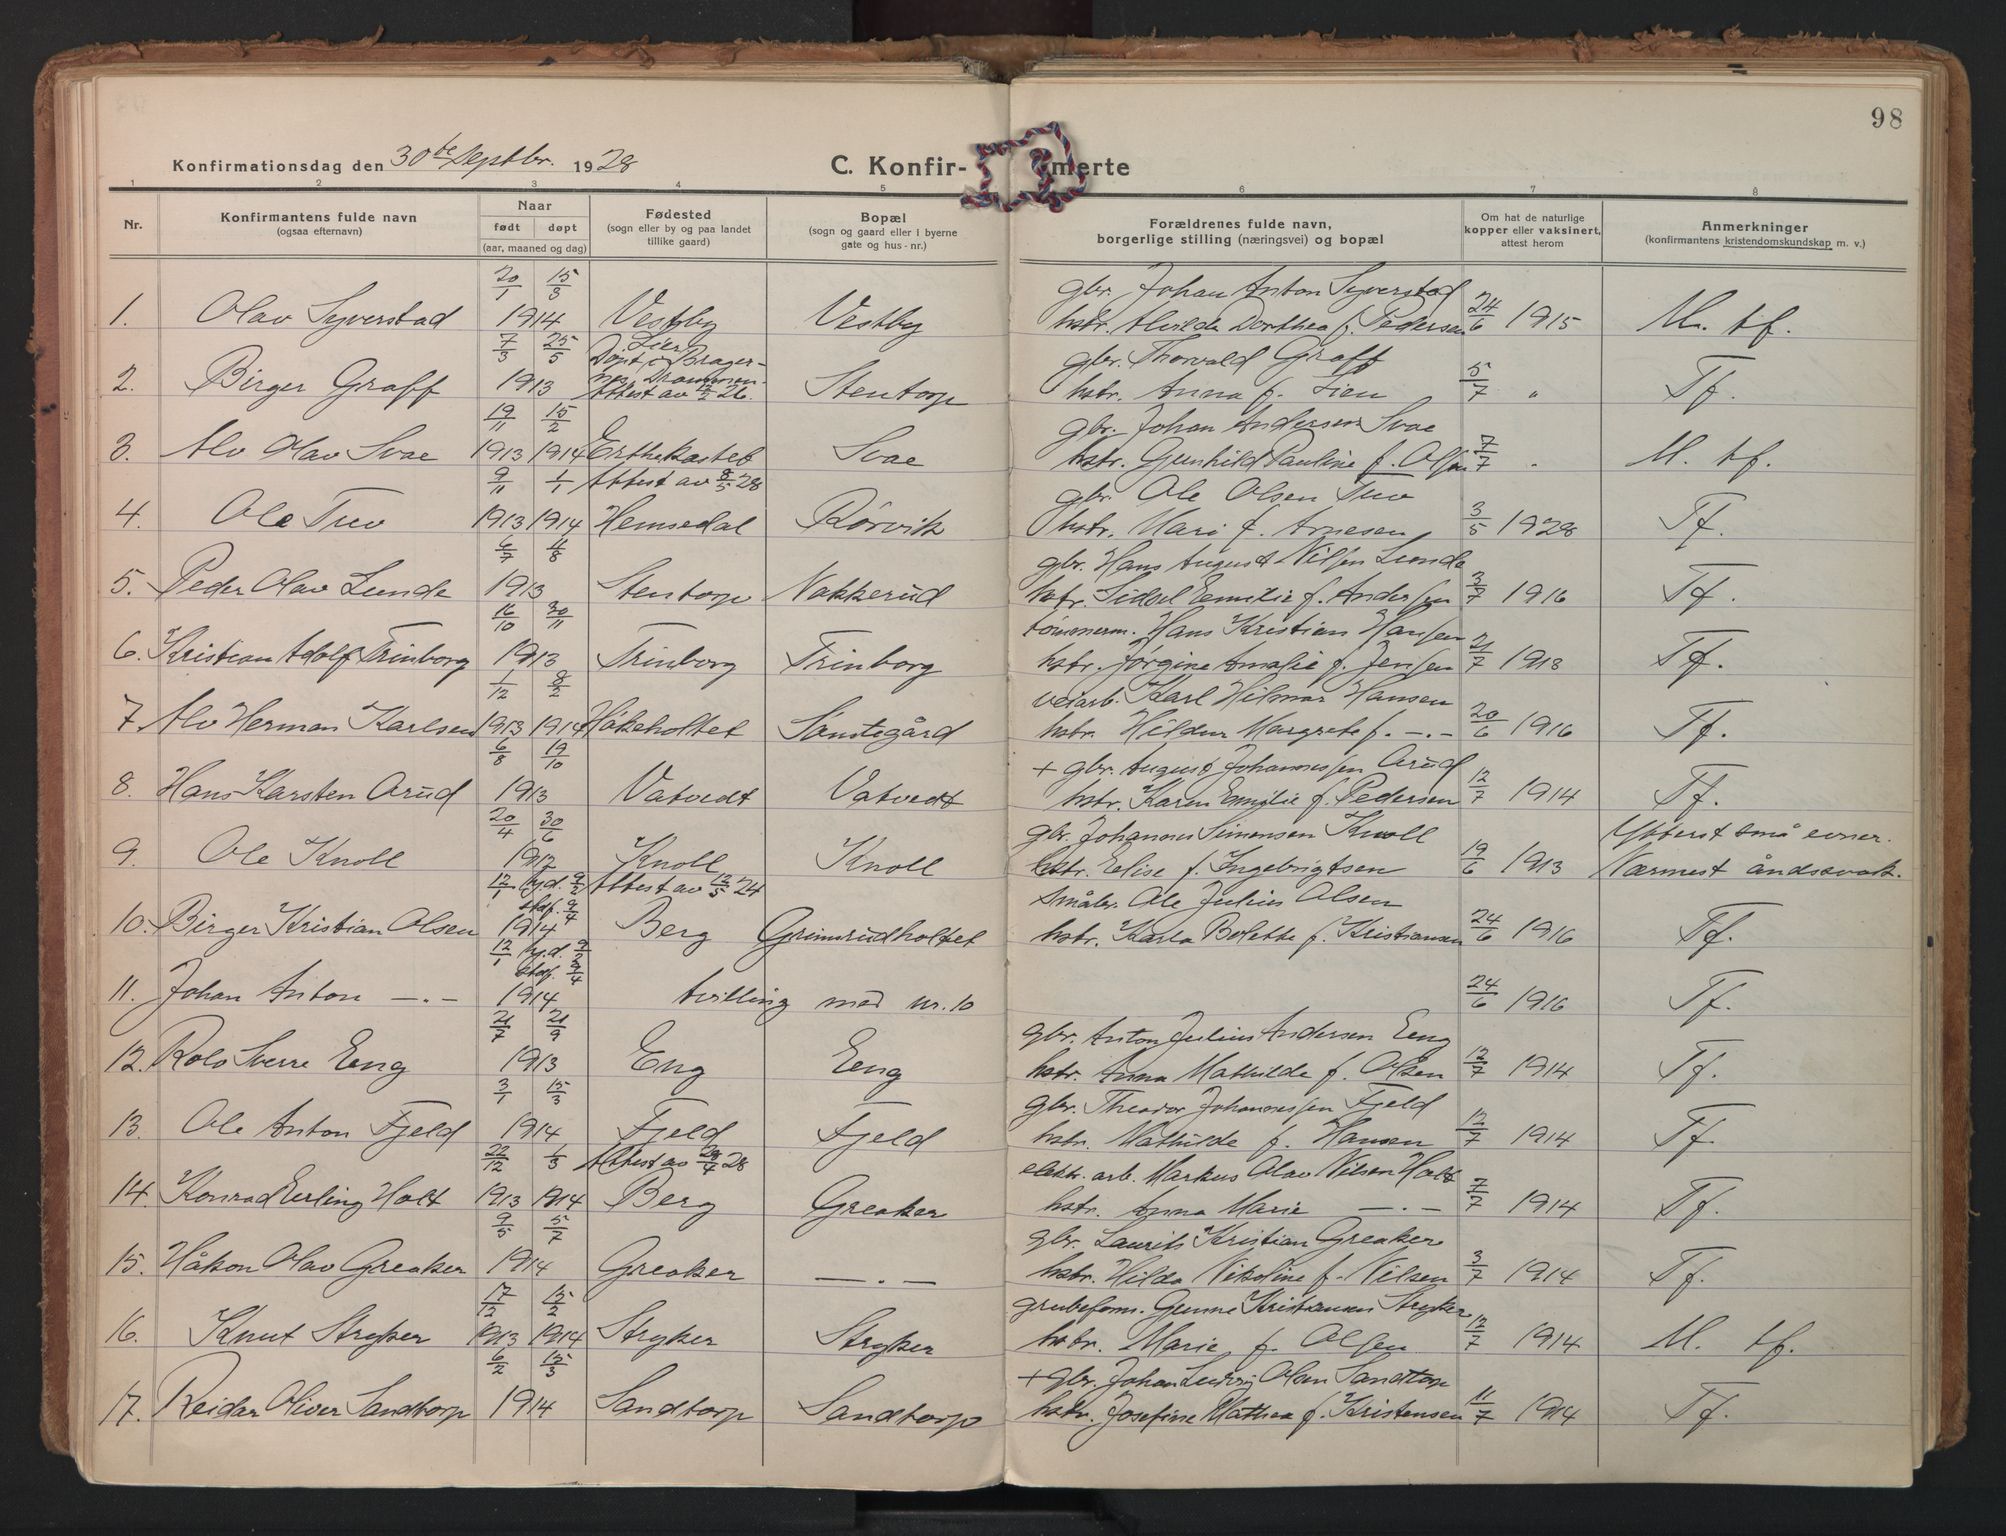 98
Konfirmationsdag den 30te Septbr. 1928
C. Konfir- merte
1 2 3 4 5 6 7 8
Nr.
Konfirmantens fulde navn
(ogsaa efternavn)
Naar
født døpt
(aar, maaned og dag)
Fødested
(sogn eller by og paa landet
tillike gaard)
Bopæl
(sogn og gaard eller i byerne
gate og hus-nr.)
Forældrenes fulde navn,
borgerlige stilling (næringsvei) og bopæl
Om hat de naturlige
kopper eller vaksinert,
attest herom
Anmerkninger
(konfirmantens kristendomskundskap m. v.)
20/1 15/3 gbr. Johan Anton Syverstad
1. Olav Syverstad 1914 Vestby Vestby hstr. Alvilde Dorthea f. Pedersen 24/6 1915 M. tf.
7/3 25/5 Lier Døpt i Brager- gbr. Thorvald Graff
2. Birger Graff 1913 nes, Drammen. Attest av 12/2 26. Stentorp hstr. Anna f. Lien 5/7 " Tf.
19/11 15/2 gbr. Johan Andersen Svae
3. Alv Olav Svae 1913 1914 Erthekastet Svae hstr. Gunhild Pauline f. Olsen 7/7 " M. tf.
9/11 1/1 Attest av 8/5 28 gbr. Ole Olsen Tuv
4. Ole Tuv 1913 1914 Hemsedal Rørvik hstr. Mari f. Arnesen 3/5 1928 Tf.
6/7 4/8 gbr. Hans August Nilsen Lunde
5. Peder Olav Lunde 1913 Stentorp Nakkerud hstr. Sidsel Eemilie f. Andersen 3/7 1916 Tf.
16/10 30/11 tømmerm. Hans Kristian Hansen
6. Kristian Adolf Trinborg 1913 Trinborg Trinborg hstr. Jørgine Amalie f. Jensen 21/7 1918 Tf.
1/12 8/2 veiarb. Karl Hilmar Hansen
7. Alv Herman Karlsen 1913 1914 Håkeholtet Sanstegård hstr. Hildur Margrete f. -"- 20/6 1916 Tf.
6/8 19/10 + gbr. August Johannessen Arud
8. Hans Karsten Arud 1913 Vatvedt Vatvedt hstr. Karen Emilie f. Pedersen 12/7 1914 Tf.
20/4 30/6 gbr. Johannes Simensen Knoll Ytterst små evner.
9. Ole Knoll 1912 Knoll Knoll hstr. Eelise f. Ingebrigtsen 19/6 1913 Nærmest åndssvak.
12/1 hj.d. 9/2 stadf. 9/4 Attest av 12/5 24 småbr. Ole Julius Olsen
10. Birger Kristian Olsen 1914 Berg Grimsrudholtet hstr. Karla Bolette f. Kristiansen 24/6 1916 Tf.
12/1 hj.d. 9/2 stadf. 9/4
11. Johan Anton -"- 1914 tvilling med nr. 10 24/6 1916 Tf.
21/7 21/9 gbr. Anton Julius Andersen Eeng
12. Rolv Sverre Eeng 1913 Eng Eeng hstr. Anna Mathilde f. Olsen 12/7 1914 Tf.
3/1 15/3 gbr. Theodor Johannessen Fjeld
13. Ole Anton Fjeld 1914 Fjeld Fjeld hstr. Mathilde f. Hansen 12/7 1914 Tf.
22/12 1/3 Attest av 28/4 28 elektr. arb. Markus Olav Nilsen Holt
14. Konrad Eerling Holt 1913 1914 Berg Greaker hstr. Anna Marie -"- 7/7 1914 Tf.
9/5 5/7 gbr. Laurits Kristian Greaker
15. Håkon Olav Greaker 1914 Greaker -"- hstr. Hilda Nikoline f. Nilsen 3/7 1914 Tf.
17/12 15/2 grubeform. Gunne Kristiansen Stryker
16. Knut Stryker 1913 1914 Stryker Stryker hstr. Marie f. Olsen 12/7 1914 M. tf.
6/2 15/3 + gbr. Johan Ludvig Olsen Sandtorp
17. Reidar Oliver Sandtorp 1914 Sandtorp Sandtorp hstr. Josefine Mathea f. Kristensen 11/7 1914 Tf.